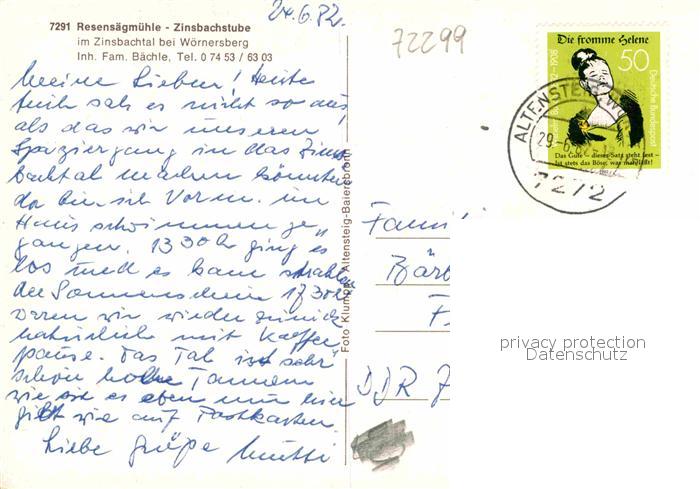 24.6.82.
7291 Resensägmühle - Zinsbachstube
im Zinsbachtal bei Wörnersberg
Inh. Fam. Bächle, Tel. 0 74 53 / 63 03
72299
Die fromme Helene
50
Deutsche Bundespost
Das Gute - dieser Satz steht fest -
ist stets das Böse, was man läßt!
ALTENSTEIG, WÜ
29.-6.82
7272
Meine Lieben! Heute
früh sah es nicht so aus
als das wir unseren
Spaziergang in das Zins
bachtal machen könnten
da bin ich Vorm. im
Haus schwimmen ge„
gangen. 13 30 Uhr ging es
los und es kam strahlen
der Sonnenschein 17 30 Uhr
waren wir wieder zurück
natürlich mit Kaffee
pause. Das Tal ist sehr
schön hohe Tannen
wie es eben nun hier
gibt wie auf Postkarten
Liebe Grüße Mutti
Foto Klumpp, Altensteig-Baiersbronn
Fami
Bär
F
DDR 7
privacy protection
Datenschutz